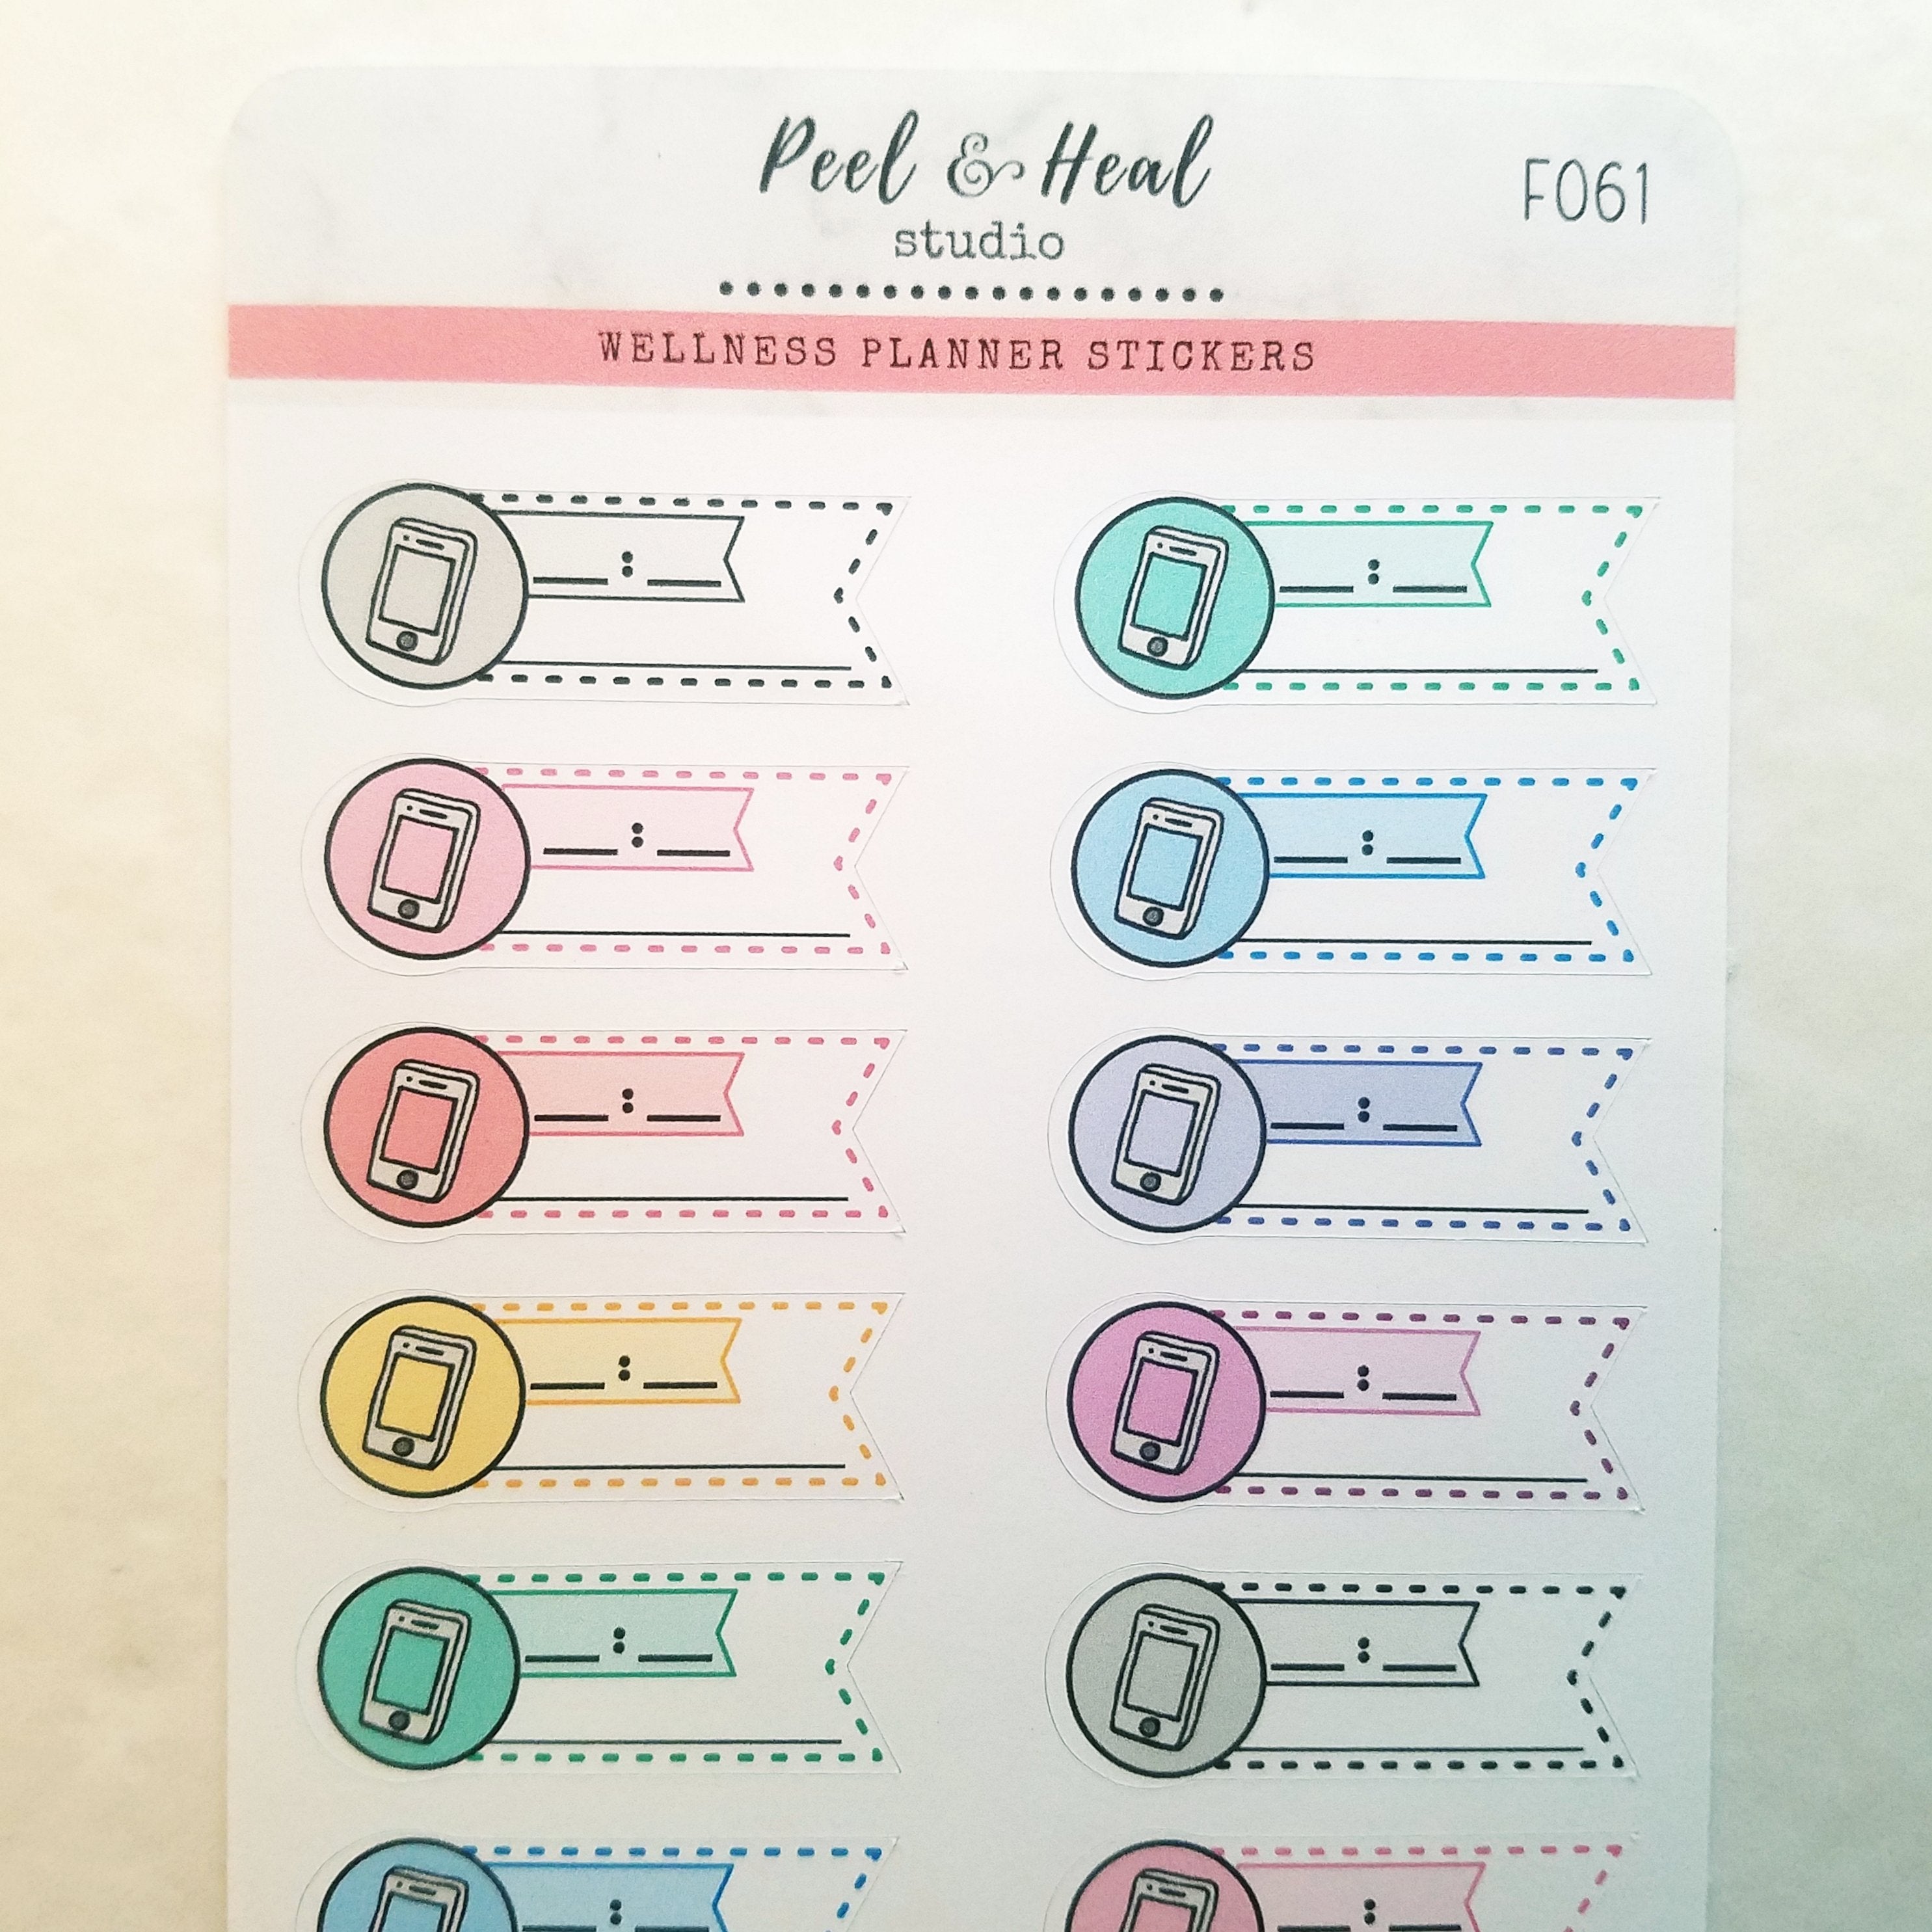 Peel & Heal
studio
F061
WELLNESS PLANNER STICKERS
__ : __
__ : __
__ : __
__ : __
__ : __
__ : __
__ : __
__ : __
__ : __
__ : __
__ : __
__ : __